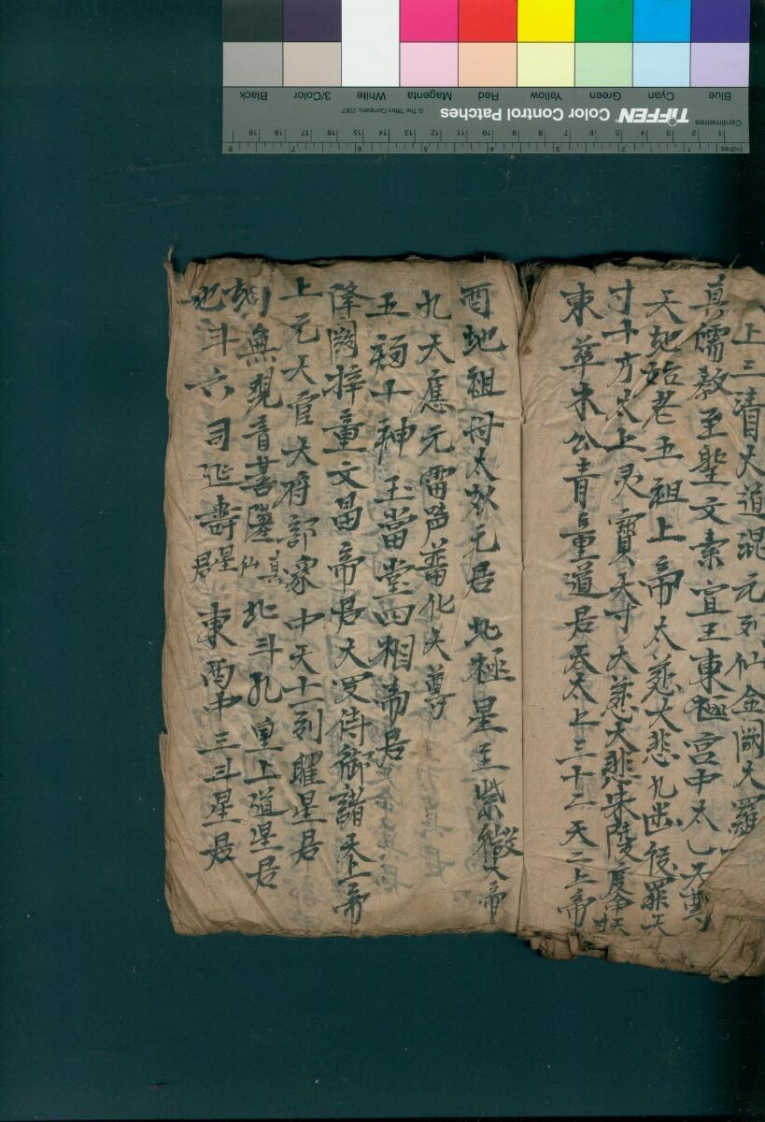 上三清大道混元列仙金闕大羅
真儒教至聖文素宣王東極宮中太乙天尊
天地始老五祖上帝太慈大悲九幽拔罪天
寸十方太上灵寶天寸大慈大悲朱陵度命天寸
東華木公青童道君太上三十二天二上帝
酉地祖母太灵元君 北極星主紫微大帝
九天應元雷声普化天尊
五福十神 玉當堂四相帝君
降闕梓童文昌帝君大罗侍御諸天上帝
上元天官天府 中天十一列曜星君
無 音菩 真仙 北斗九皇上道星君
北斗六司延壽星君 東西中三斗星君
Inches
Centimetres
TIFFEN Color Control Patches
© The Tiffen Company, 2007
Blue
Cyan
Green
Yellow
Red
Magenta
White
3/Color
Black